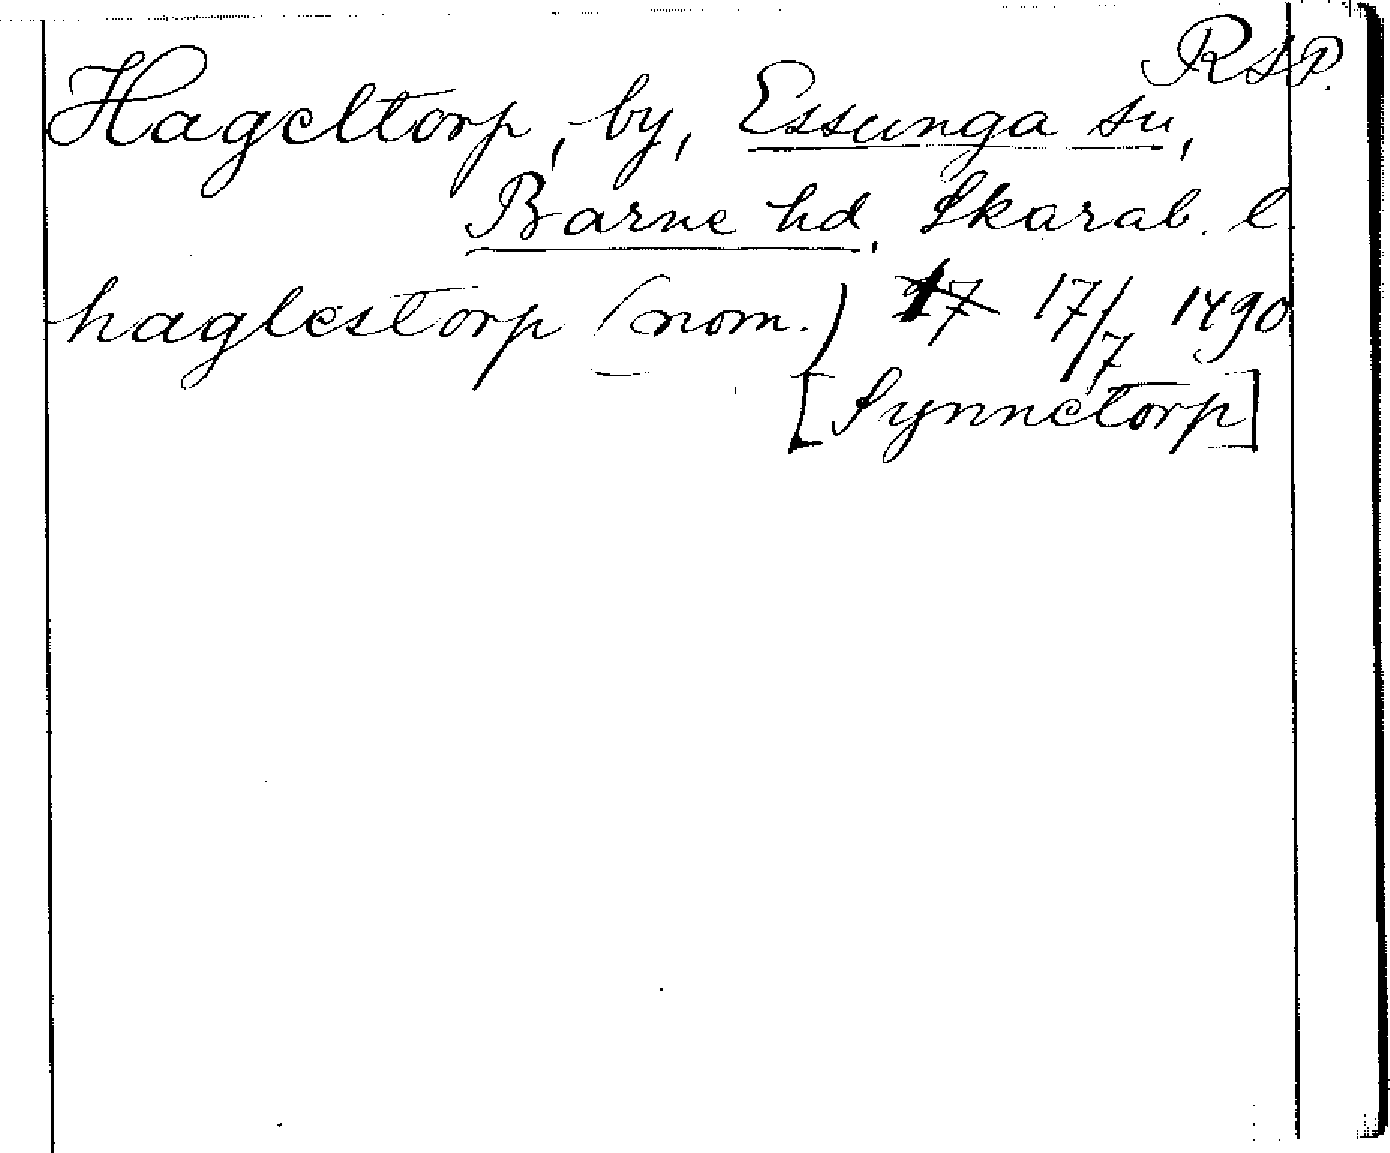 RSP.
Hageltorp, by, Essunga sn,
Barne hd, Skarab. l.
haglestorp (nom.) 17 17/7 1490
[Synnetorp]